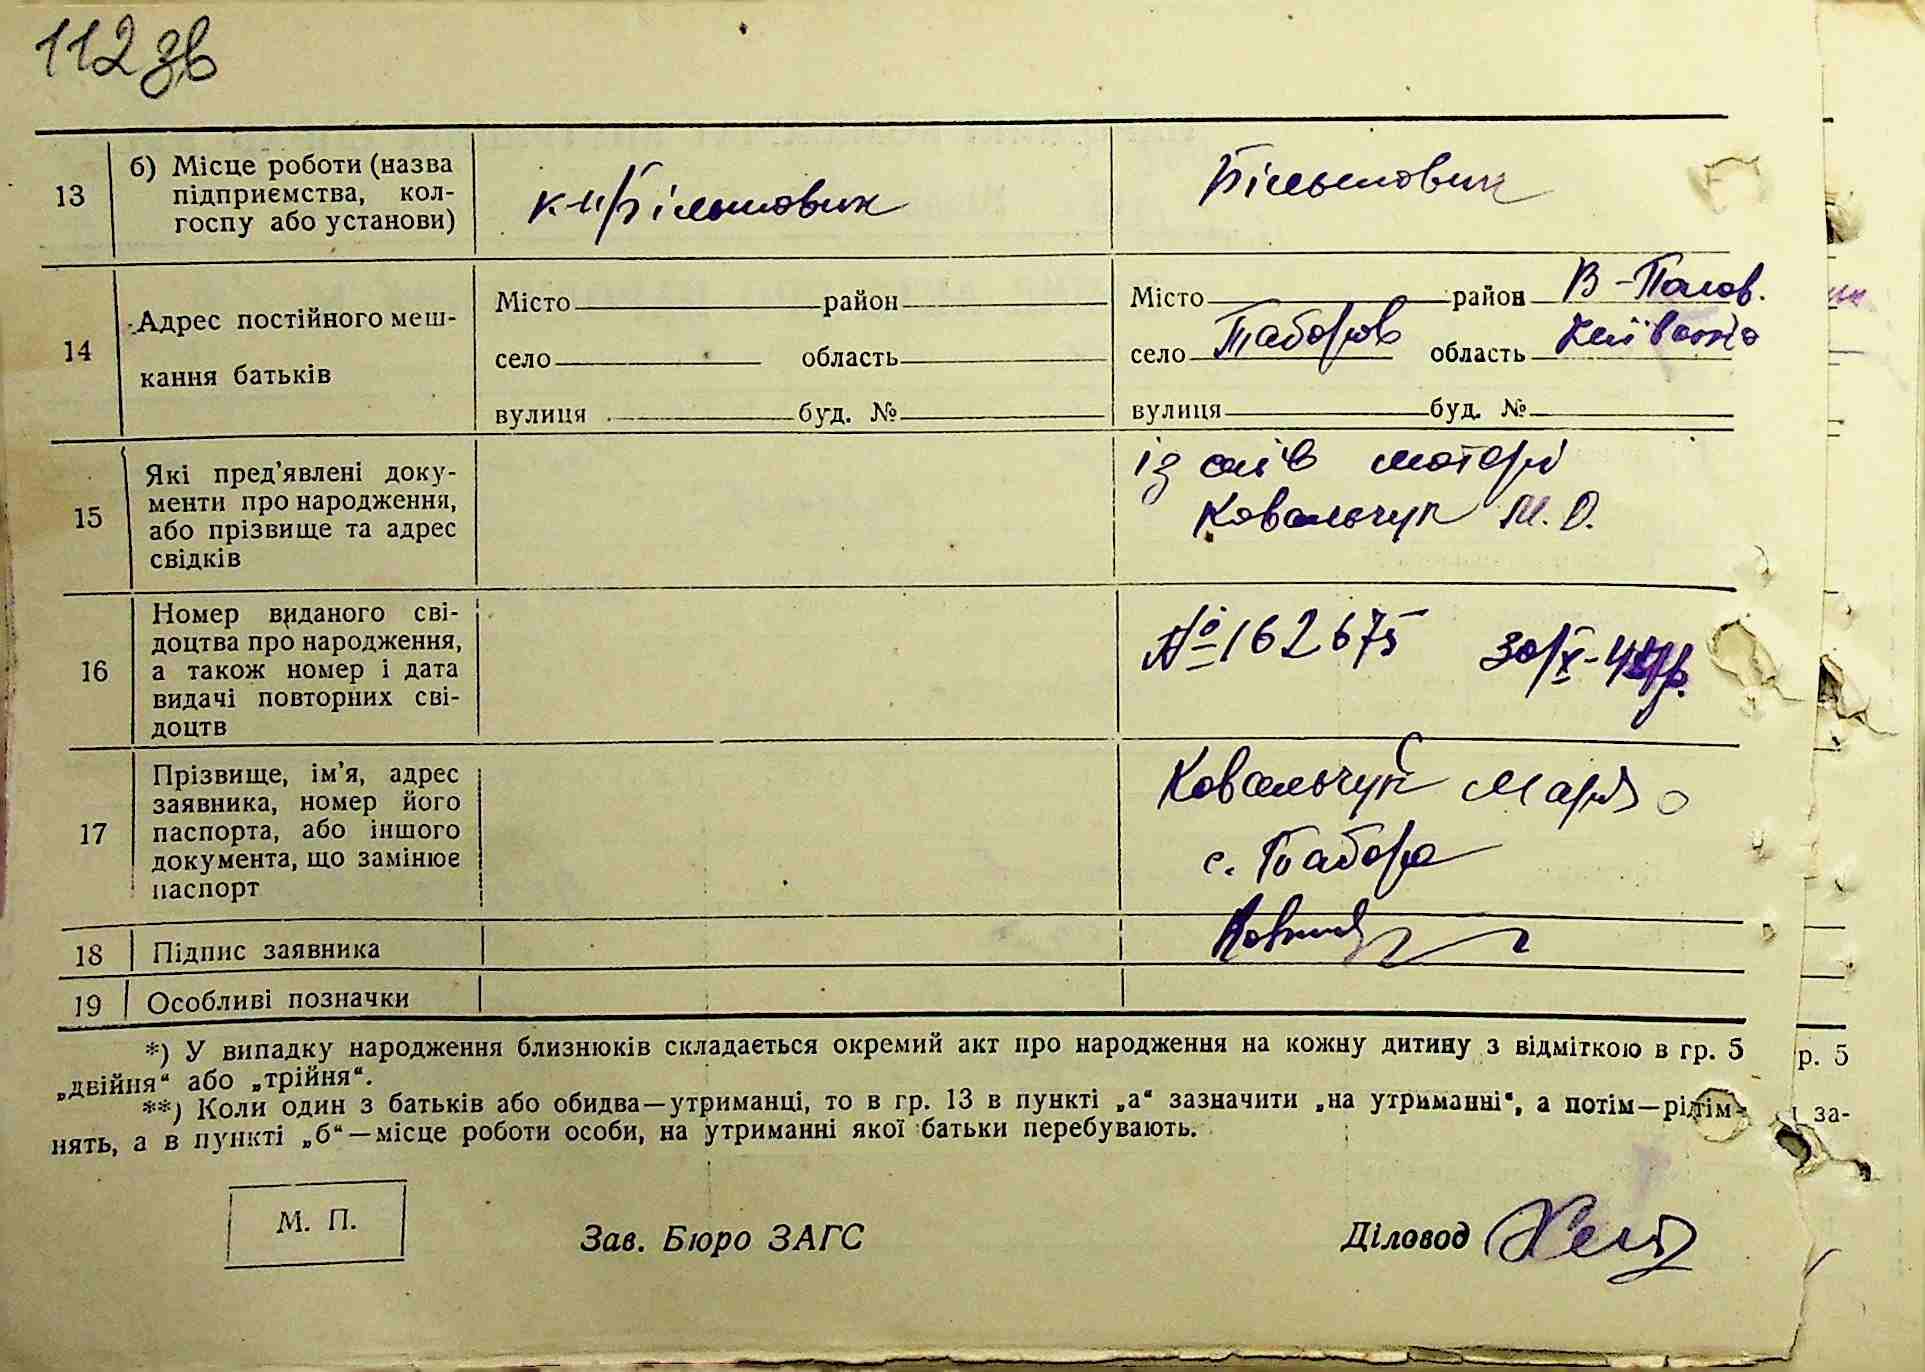 112 зв
13
б) Місце роботи (назва
підприємства, кол-
госпу або установи)
к-п Більшовик
Більшовик
14
Адрес постійного меш-
кання батьків
Місто район
село область
вулиця буд. №
Місто район В-Полов.
село Таборов область Київська
вулиця буд. №
15
Які пред'явлені доку-
менти про народження,
або прізвище та адрес
свідків
із слів матері
Ковальчук М. О.
16
Номер виданого сві-
доцтва про народження,
а також номер і дата
видачі повторних сві-
доцтв
№ 162675 30/X-
17
Прізвище, ім'я, адрес
заявника, номер його
паспорта, або іншого
документа, що замінює
паспорт
Ковальчук Марія
с. Табора
18 Підпис заявника
19 Особливі позначки
*) У випадку народження близнюків складається окремий акт про народження на кожну дитину з відміткою в гр. 5
„двійня“ або „трійня“.
**) Коли один з батьків або обидва—утриманці, то в гр. 13 в пункті „а“ зазначити „на утриманні“, а потім—рід
нять, а в пункті „б“—місце роботи особи, на утриманні якої батьки перебувають.
р. 5
за-
М. П.
Зав. Бюро ЗАГС
Діловод